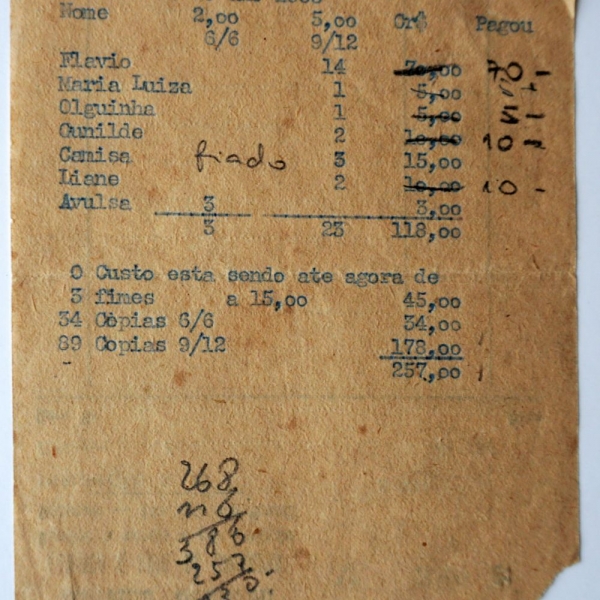 Nome 2,00 5,00 Cr$ Pagou
6/6 9/12
Flavio 14 70,00 70 -
Maria Luiza 1 5,00
Olguinha 1 5,00
Gunilde 2 10,00 10 -
Camisa fiado 3 15,00
Liane 2 10,00 10 -
Avulsa 3 3,00
3 23 118,00
O Custo esta sendo ate agora de
3 fimes a 15,00 45,00
34 Còpias 6/6 34,00
89 Copias 9/12 178,00
257,00
268